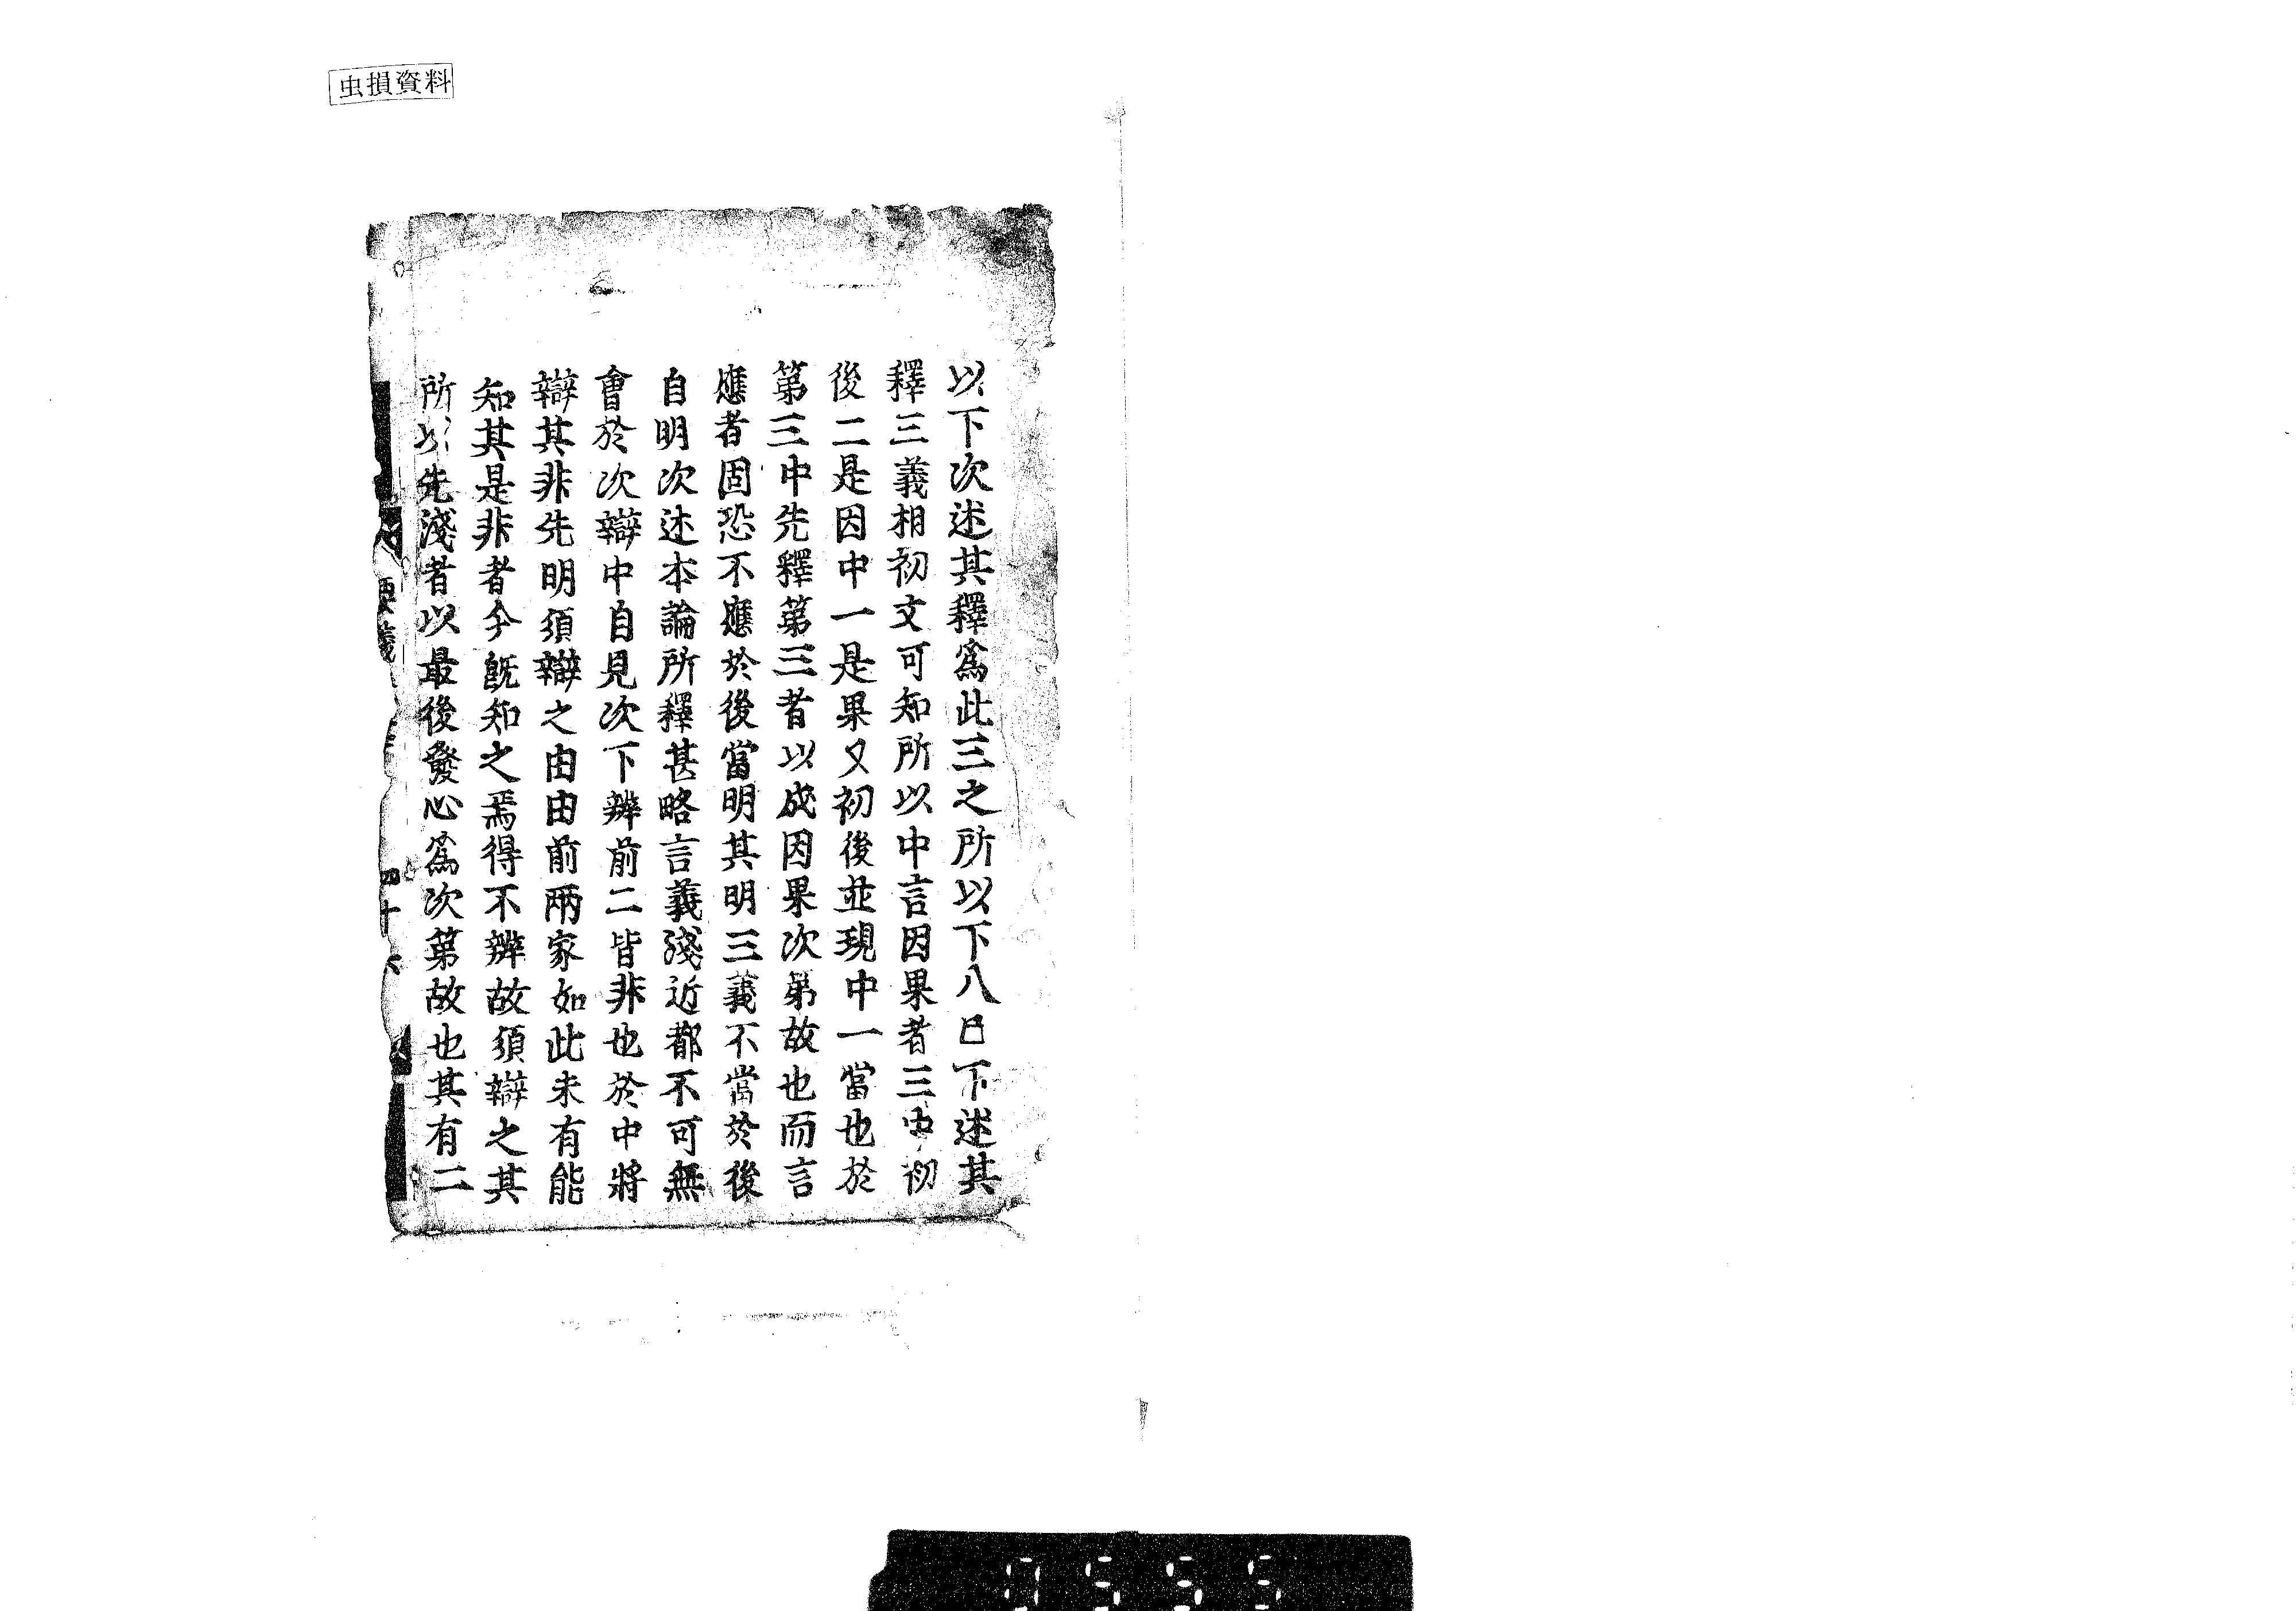 虫損資料
以下次述其釋爲此三之所以下八巳下述其
釋三義相初文可知所以中言因果者三中初
後二是因中一是果又初後並現中一當也於
第三中先釋第三者以成因果次第故也而言
應者固恐不應於後當明其明三義不當於後
自明次述本論所釋甚略言義淺近都不可無
會於次辯中自見次下辨前二皆非也於中將
辯其非先明須辯之由由前兩家如此未有能
知其是非者今旣知之焉得不辨故須辯之其
所以先淺者以最後發心爲次第故也其有二
要義
四十六
0555